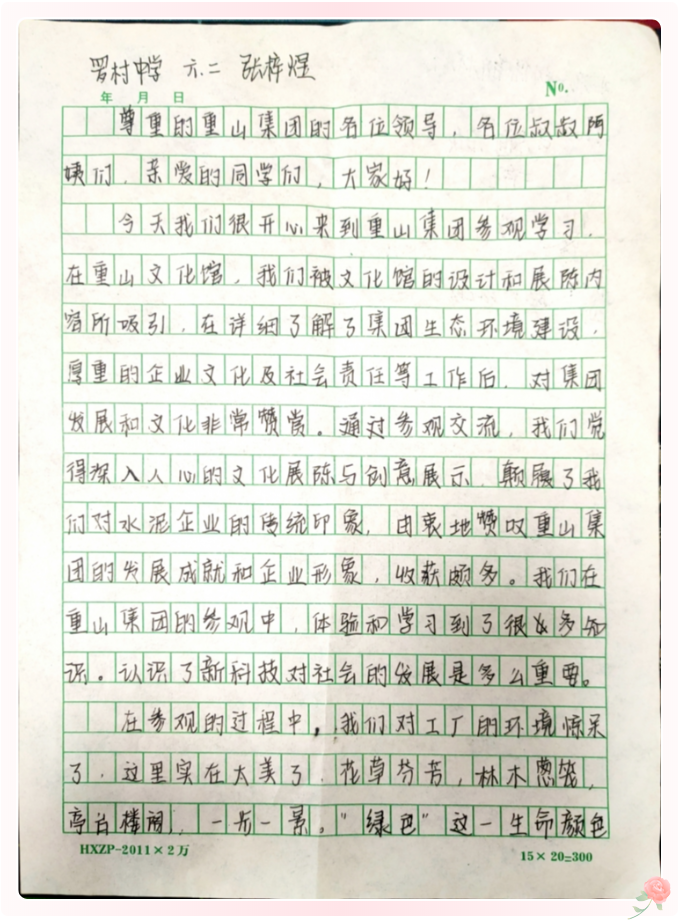 罗村中学 六.二 张梓煜
年 月 日 No.
尊重的重山集团的各位领导，各位叔叔阿
姨们，亲爱的同学们，大家好！
今天我们很开心来到重山集团参观学习，
在重山文化馆，我们被文化馆的设计和展陈内
容所吸引，在详细了解了集团生态环境建设，
厚重的企业文化及社会责任等工作后，对集团
发展和文化非常赞赏。通过参观交流，我们觉
得深入人心的文化展陈与创意展示，颠覆了我
们对水泥企业的传统印象，由衷地赞叹重山集
团的发展成就和企业形象，收获颇多。我们在
重山集团的参观中，体验和学习到了很多知
识。认识了新科技对社会的发展是多么重要。
在参观的过程中，我们对工厂的环境惊呆
了，这里实在太美了，花草芬芳，林木葱笼，
亭台楼阁，一步一景。"绿色"这一生命颜色
HXZP-2011×2万 15×20=300